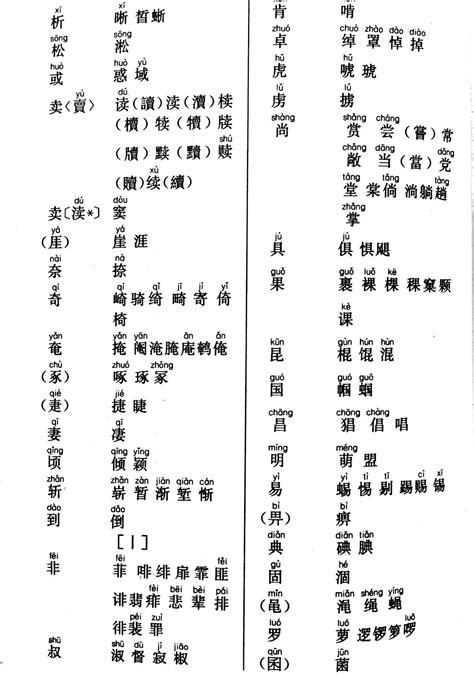 xī xī
析 晰 皙 蜥
sōng sōng
松 淞
huò huò yù
或 惑 域
yù dú
卖(賣) 读(讀)渎(瀆)椟
(櫝)犊(犢)牍
shú
(牘)黩(黷)赎
xù
(贖)续(續)
dú dòu
卖〔渎*〕 窦
yá yá
(厓) 崖 涯
nài nài
奈 捺
qí qí qǐ jī jì yǐ
奇 崎 骑 绮 畸 寄 倚
椅
yǎn yǎn yān ān ǎn
奄 掩 阉 淹 腌 庵 鹌 俺
chù zhuó zhǒng
(豖) 啄 琢 冢
qiè jié
(疌) 捷 睫
qī qī
妻 凄
qǐng qīng yǐng
顷 倾 颖
zhǎn zhǎn zàn jiàn qiàn cán
斩 崭 暂 渐 堑 惭
dào dǎo
到 倒
[丨]
fēi fēi fěi
非 菲 啡 绯 扉 霏 匪
fěi fèi bēi bèi pái
诽 翡 痱 悲 辈 排
péi zuì
徘 裴 罪
shū shū dū jì jiāo
叔 淑 督 寂 椒
肯 啃
zhuó chuò zhào dào diào
卓 绰 罩 悼 掉
hǔ hǔ
虎 唬 琥
lǔ lǔ
虏 掳
shàng shǎng cháng
尚 赏 尝(嘗)常
chǎng dāng dǎng
敞 当(當)党
táng tǎng tàng
堂 棠 倘 淌 躺 趟
zhǎng
掌
jù jù
具 俱 惧 飓
guǒ guǒ luǒ kē
果 裹 裸 棵 稞 窠 颗
kè
课
kūn gùn hún hùn
昆 棍 馄 混
guó guó guō
国 帼 蝈
chāng chāng chàng
昌 猖 倡 唱
míng méng
明 萌 盟
yì yì tì tī cì xī
易 蜴 惕 剔 踢 赐 锡
bì bì
(畀) 痹
diǎn diǎn tiǎn
典 碘 腆
gù hé
固 涸
mǐn miǎn shéng yíng
(黾) 渑 绳 蝇
luó luó luō
罗 萝 逻 锣 箩 啰
qūn jūn
(囷) 菌